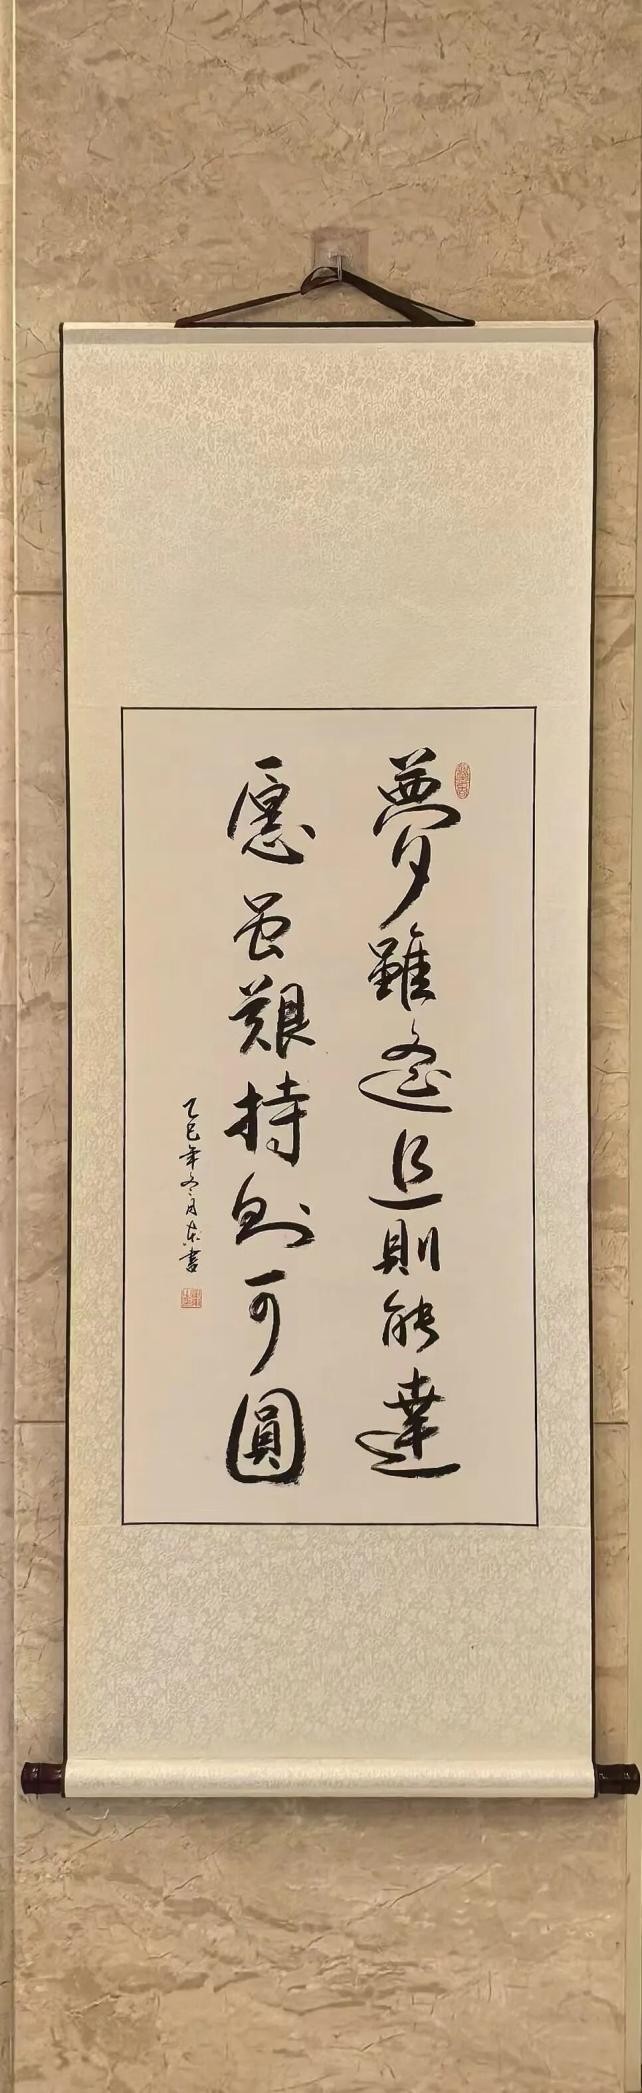 夢雖遙追則能達
愿虽艱持则可圓
乙巳年冬月东書